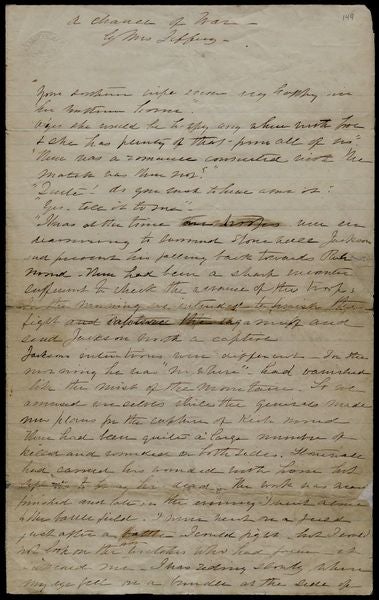 149
A chance of War -
By Mrs
"Your southern wife seems very happy in
her northern home."
"Oh yes she would be happy any where with love
& she has plenty of that - from all of us."
"There was a romance connected with the
match was there not?"
"Quite! do you care to hear about it?"
"Yes. tell it to me."
"It was at the time our troops were en
deavouring to surround Stonewall Jackson
and prevent his falling back towards Rich
mond. There had been a sharp encounter
sufficient to check the advance of the troops
in the morning we intended to finish the
fight and and
send Jackson North a captive
Jacksons intentions were different. In the
morning he was "no where". had vanished
like the mist of the mountains. So we
amused ourselves while the generals made
new plans for the capture of Rich mond
There had been quite a large number of
killed and wounded on both sides. Stonewall
had carried his wounded with him but
left us to bury his dead. The work was accom
plished and late in the evening I went alone
to the battle field. I never went on a field
just after a battle I could fight but I could
not look on the wretches who had fallen it
me. I was riding slowly when
my eye fell on a bundle at the side of